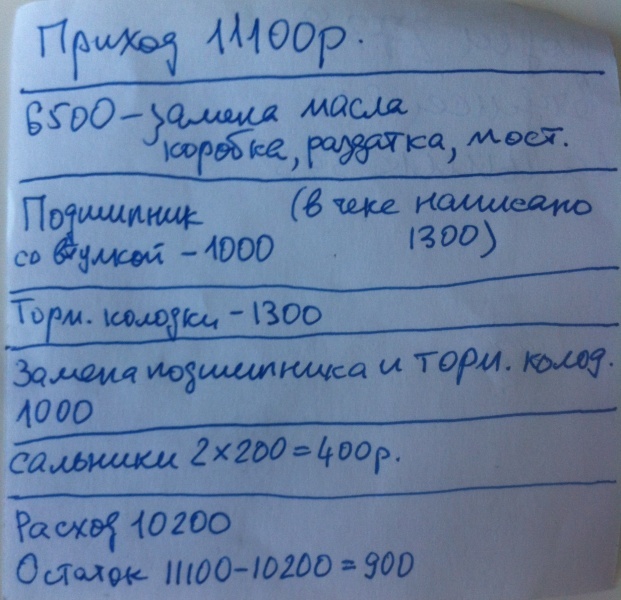 Приход 11100р.
6500 – замена масла
коробка, раздатка, мост.
Подшипник (в чеке написано
со втулкой – 1000 1300)
Торм. колодки – 1300
Замена подшипника и торм. колод.
1000
сальники 2×200=400р.
Расход 10200
Остаток 11100–10200=900